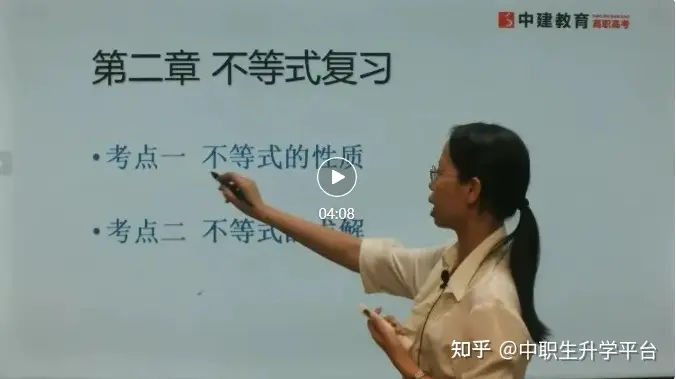 中建教育 高职高考
第二章 不等式复习
•考点一 不等式的性质
04:08
•考点二 不等式的求解
知乎 @中职生升学平台